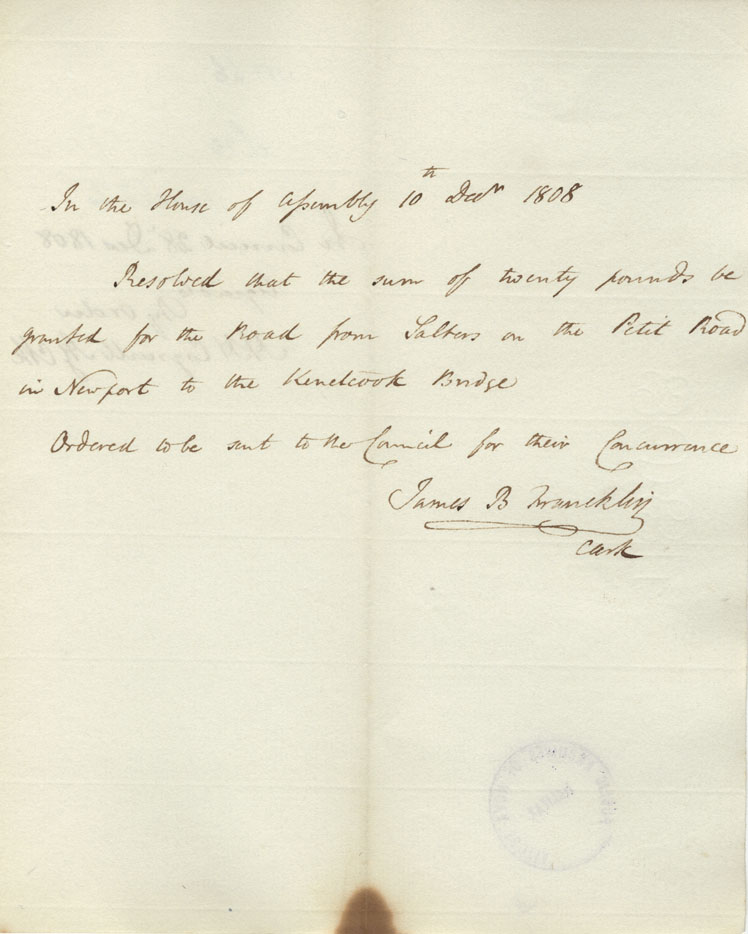 In the House of Assembly 10th Decr 1808
Resolved that the sum of twenty pounds be
granted for the Road from Salters on the Petit Road
in Newport to the Kenetcook Bridge
Ordered to be sent to the Council for their Concurrence
James B Francklin
Clerk